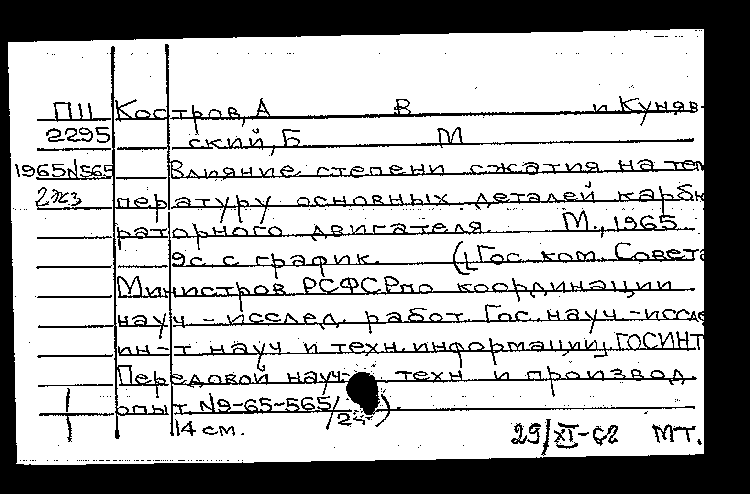 П11 Костров, А В и Куняв-
2295 ский, Б М
1965N565 Влияние степени сжатия на тем
2жз пературу основных деталей карбю
раторного двигателя. М., 1965
9с с график. (Гос. ком. Совета
Министров РСФСР по координации
науч-исслед. работ. Гос. науч-иссле
ин-т науч и техн. информации, ГОСИНТ
Передовой науч- техн и производ
опыт. N9-65-565/24).
14 см. 29/XI-62 МТ.